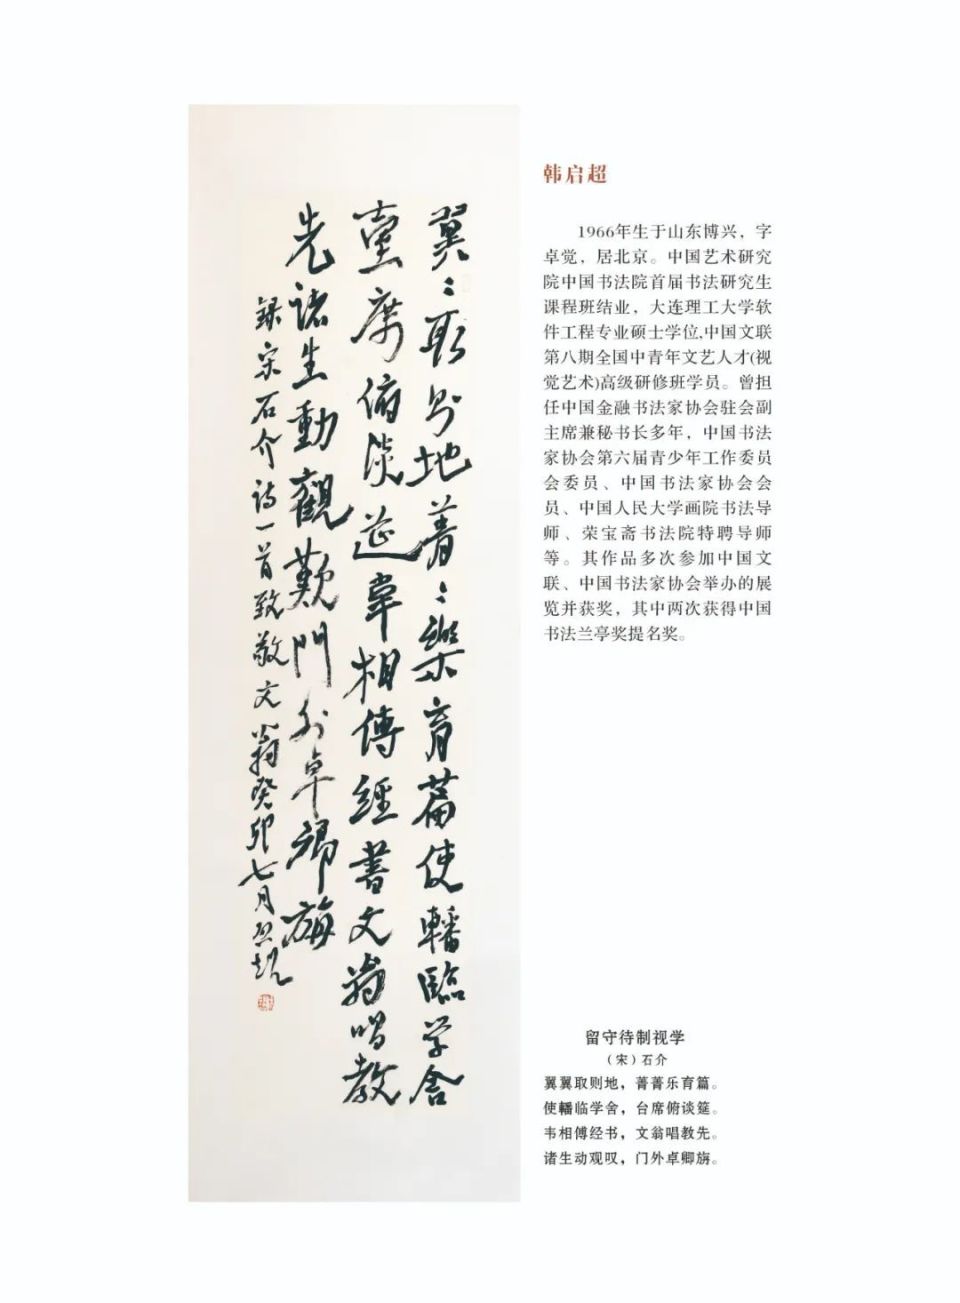 翼〻取則地菁〻樂育篇使轓臨学舍
臺席俯談筵韋相傳經書文翁唱教
先諸生動觀歎門外卓卿旃
録宋石介詩一首致敬文翁癸卯七月啟超
韩启超
1966年生于山东博兴，字
卓觉，居北京。中国艺术研究
院中国书法院首届书法研究生
课程班结业，大连理工大学软
件工程专业硕士学位,中国文联
第八期全国中青年文艺人才(视
觉艺术)高级研修班学员。曾担
任中国金融书法家协会驻会副
主席兼秘书长多年，中国书法
家协会第六届青少年工作委员
会委员、中国书法家协会会
员、中国人民大学画院书法导
师、荣宝斋书法院特聘导师
等。其作品多次参加中国文
联、中国书法家协会举办的展
览并获奖，其中两次获得中国
书法兰亭奖提名奖。
留守待制视学
（宋）石介
翼翼取则地，菁菁乐育篇。
使轓临学舍，台席俯谈筵。
韦相傅经书，文翁唱教先。
诸生动观叹，门外卓卿旃。